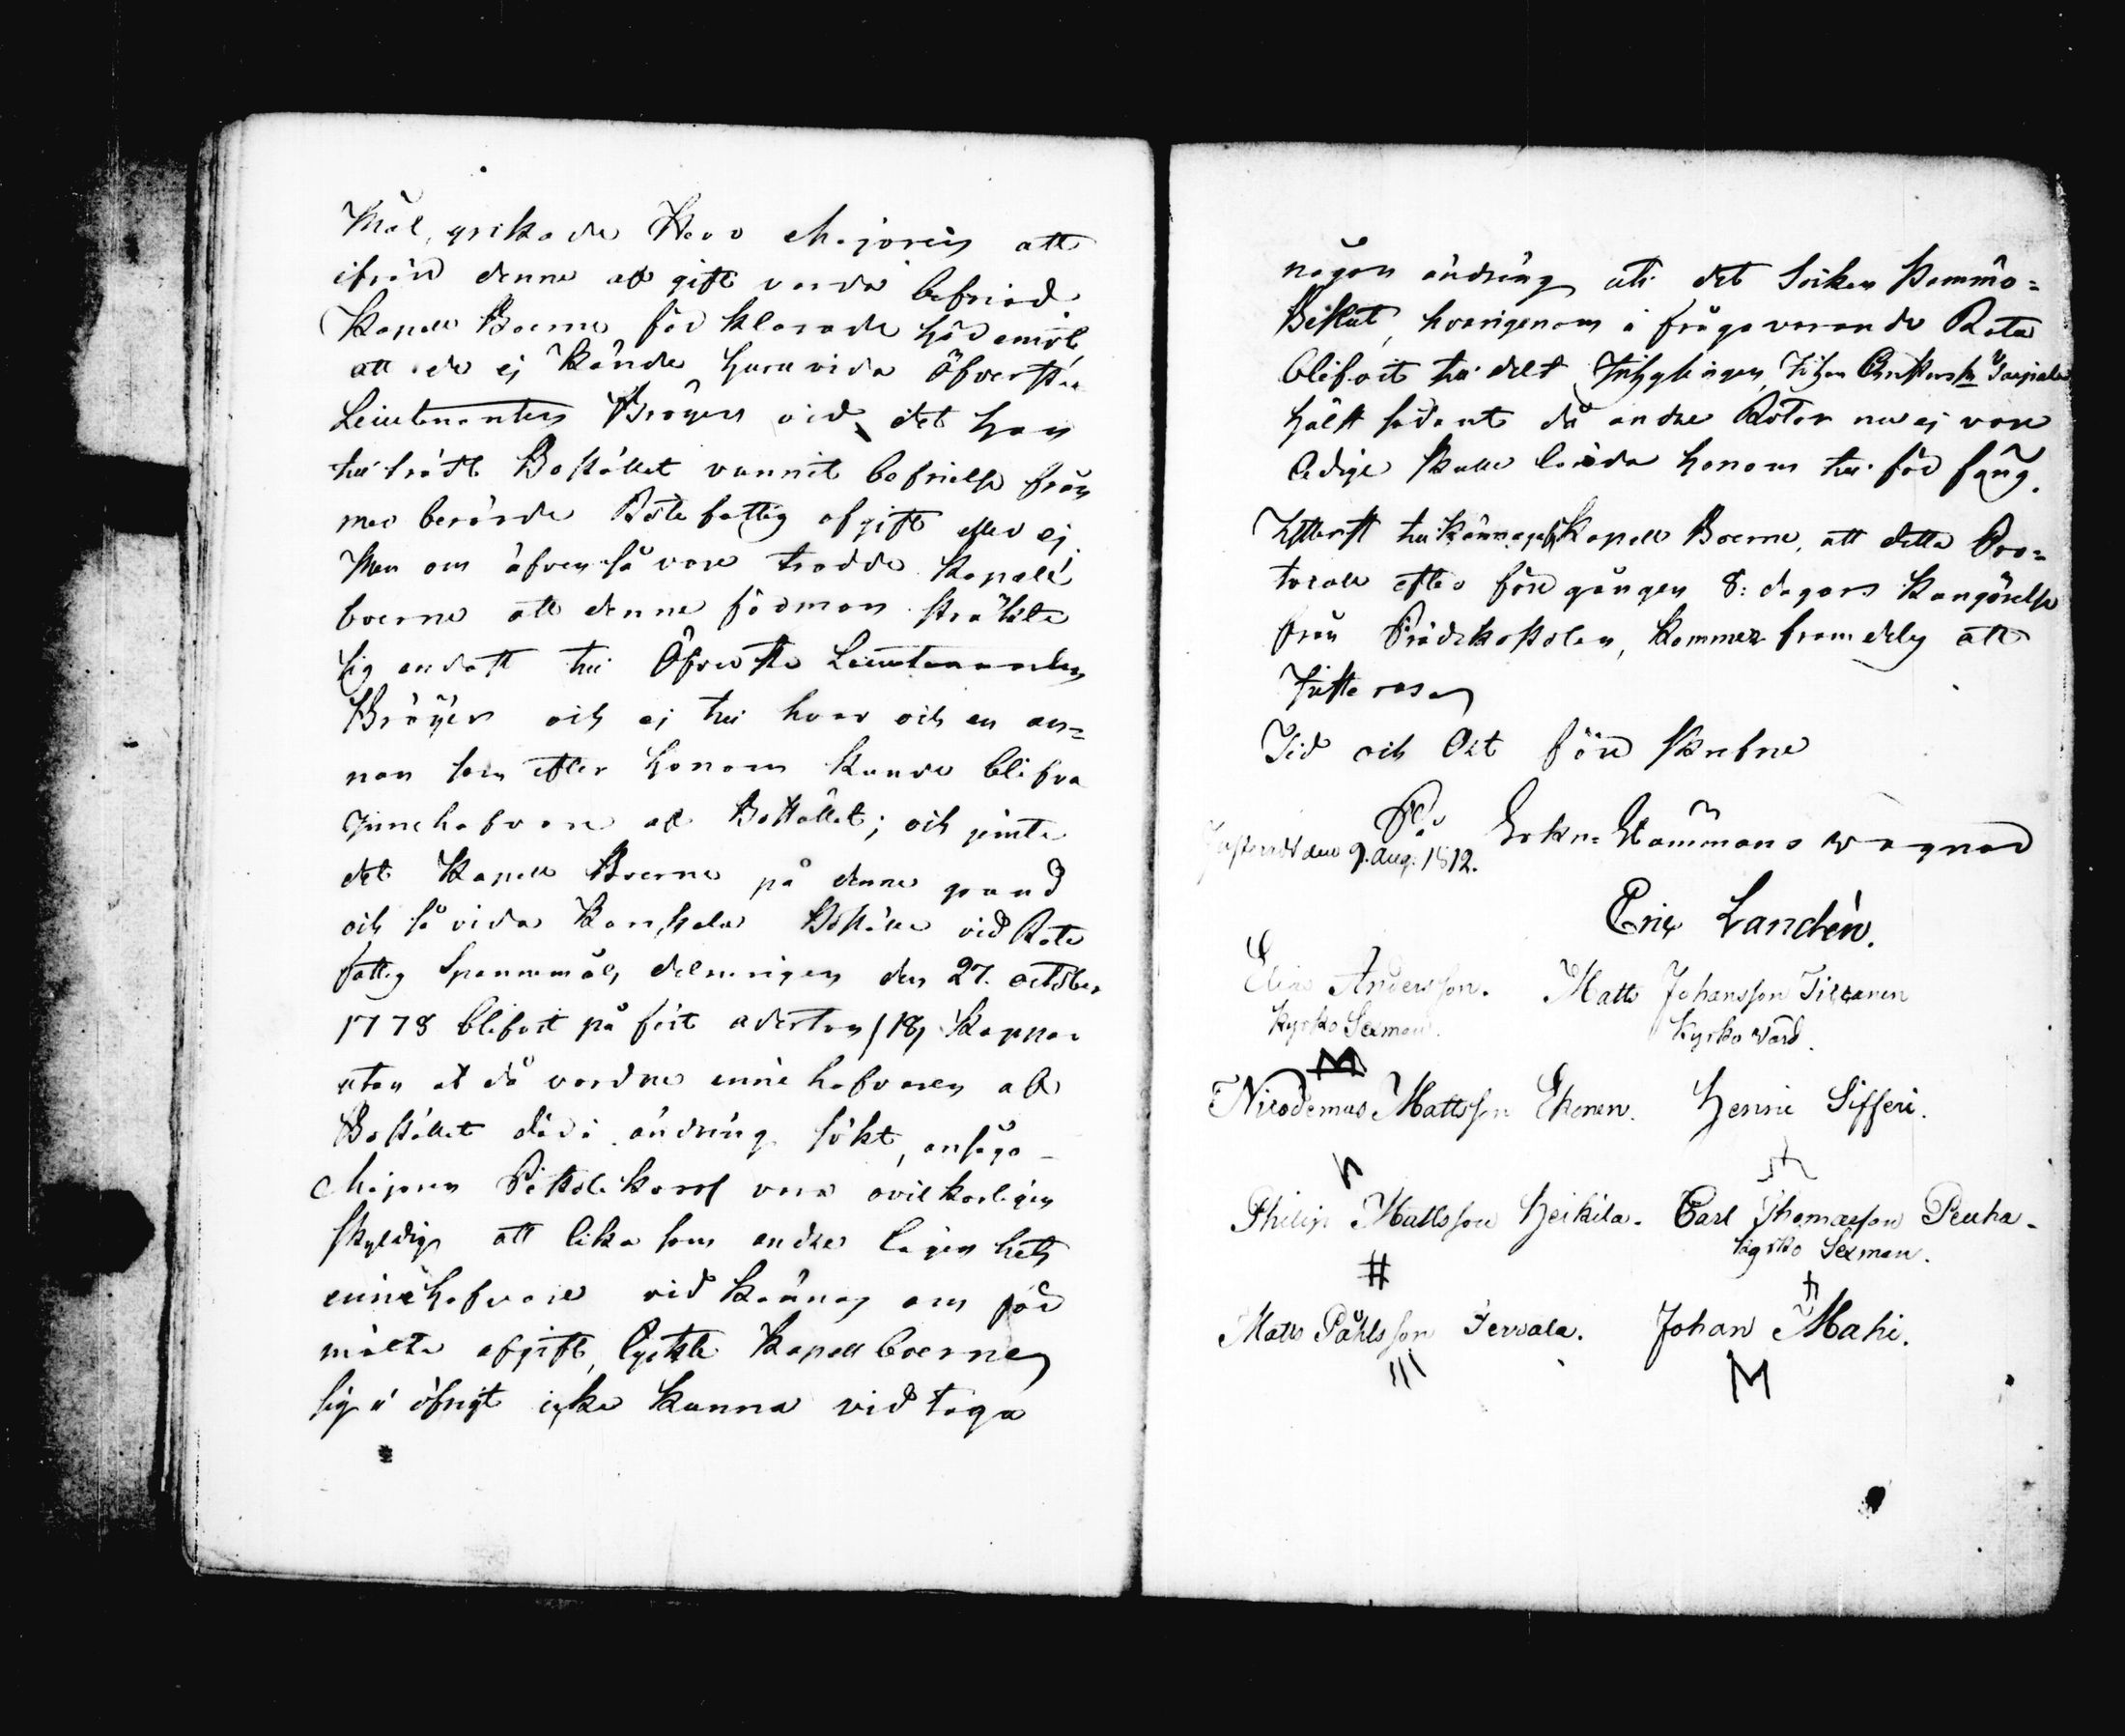 Mål, yrkade Herr Majoren att
ifrån denne afgift varda befriad.
Kapell Boerne förklarade häremot,
att de ej kände huruvida Öfverste
Lieutenanten Bröijer vid det han
tillträdt Bostället vunnit befrielse från
merberörde Rotefattig afgift eller ej
Men om äfven så vore trodde Kapell
boerne att denne förmon sträckte
sig endast till Öfverste Lieutenanten
Bröijer och ej till hvar och en an=
nan som efter honom kunde blifva
Innehafvare af Bostället; och jemte
det Kapell Boerne på denne grund
och så vida Boställe vid Rote
fattig Spannmåls delningen den 27. october
1778 blifvit påfört aderton (18) Kappar
utan at då varande innehafvaren af
Bostället däri ändring sökt, ansågo
Majoren vara ovilkorligen
skyldig att lika som andre lägenhets
innehafvare vidkännas om för
mälte afgift, lyckte Kapellboerne
sig i öfrigt icke kunna vidtaga
någon ändring uti det Socken Stämmo=
Beslut, hvarigenom i fråga varande Rota
blifvit tilldelt Inhysingen Johan
hälst sådant då andre Rotor nu ej vore
ledige skulle lända honom till förfång.
Ytterst tillkännagafs Kapell Boerne, att detta Pro=
tocoll efter föregången 8: dagars Kungörelse
från Prädikostolen, kommer framdeles att
Justeras
Tid och Ort före skrefne
På Sockne Stämmans vägnar
Justeradt den 9. Aug. 1812.
Eric Landén.
Elias Andersson. Matts Johansson Tiккanen
Kyrko Sexman. Kyrko värd.
Nicodemus Mattsson Ekonen. Henric Sifferi.
Philip Mattsson Heikila. Carl Thomasson Peuha.
Kyrko Sexman.
Matts Påhlsson Jervala. Johan Mahi.